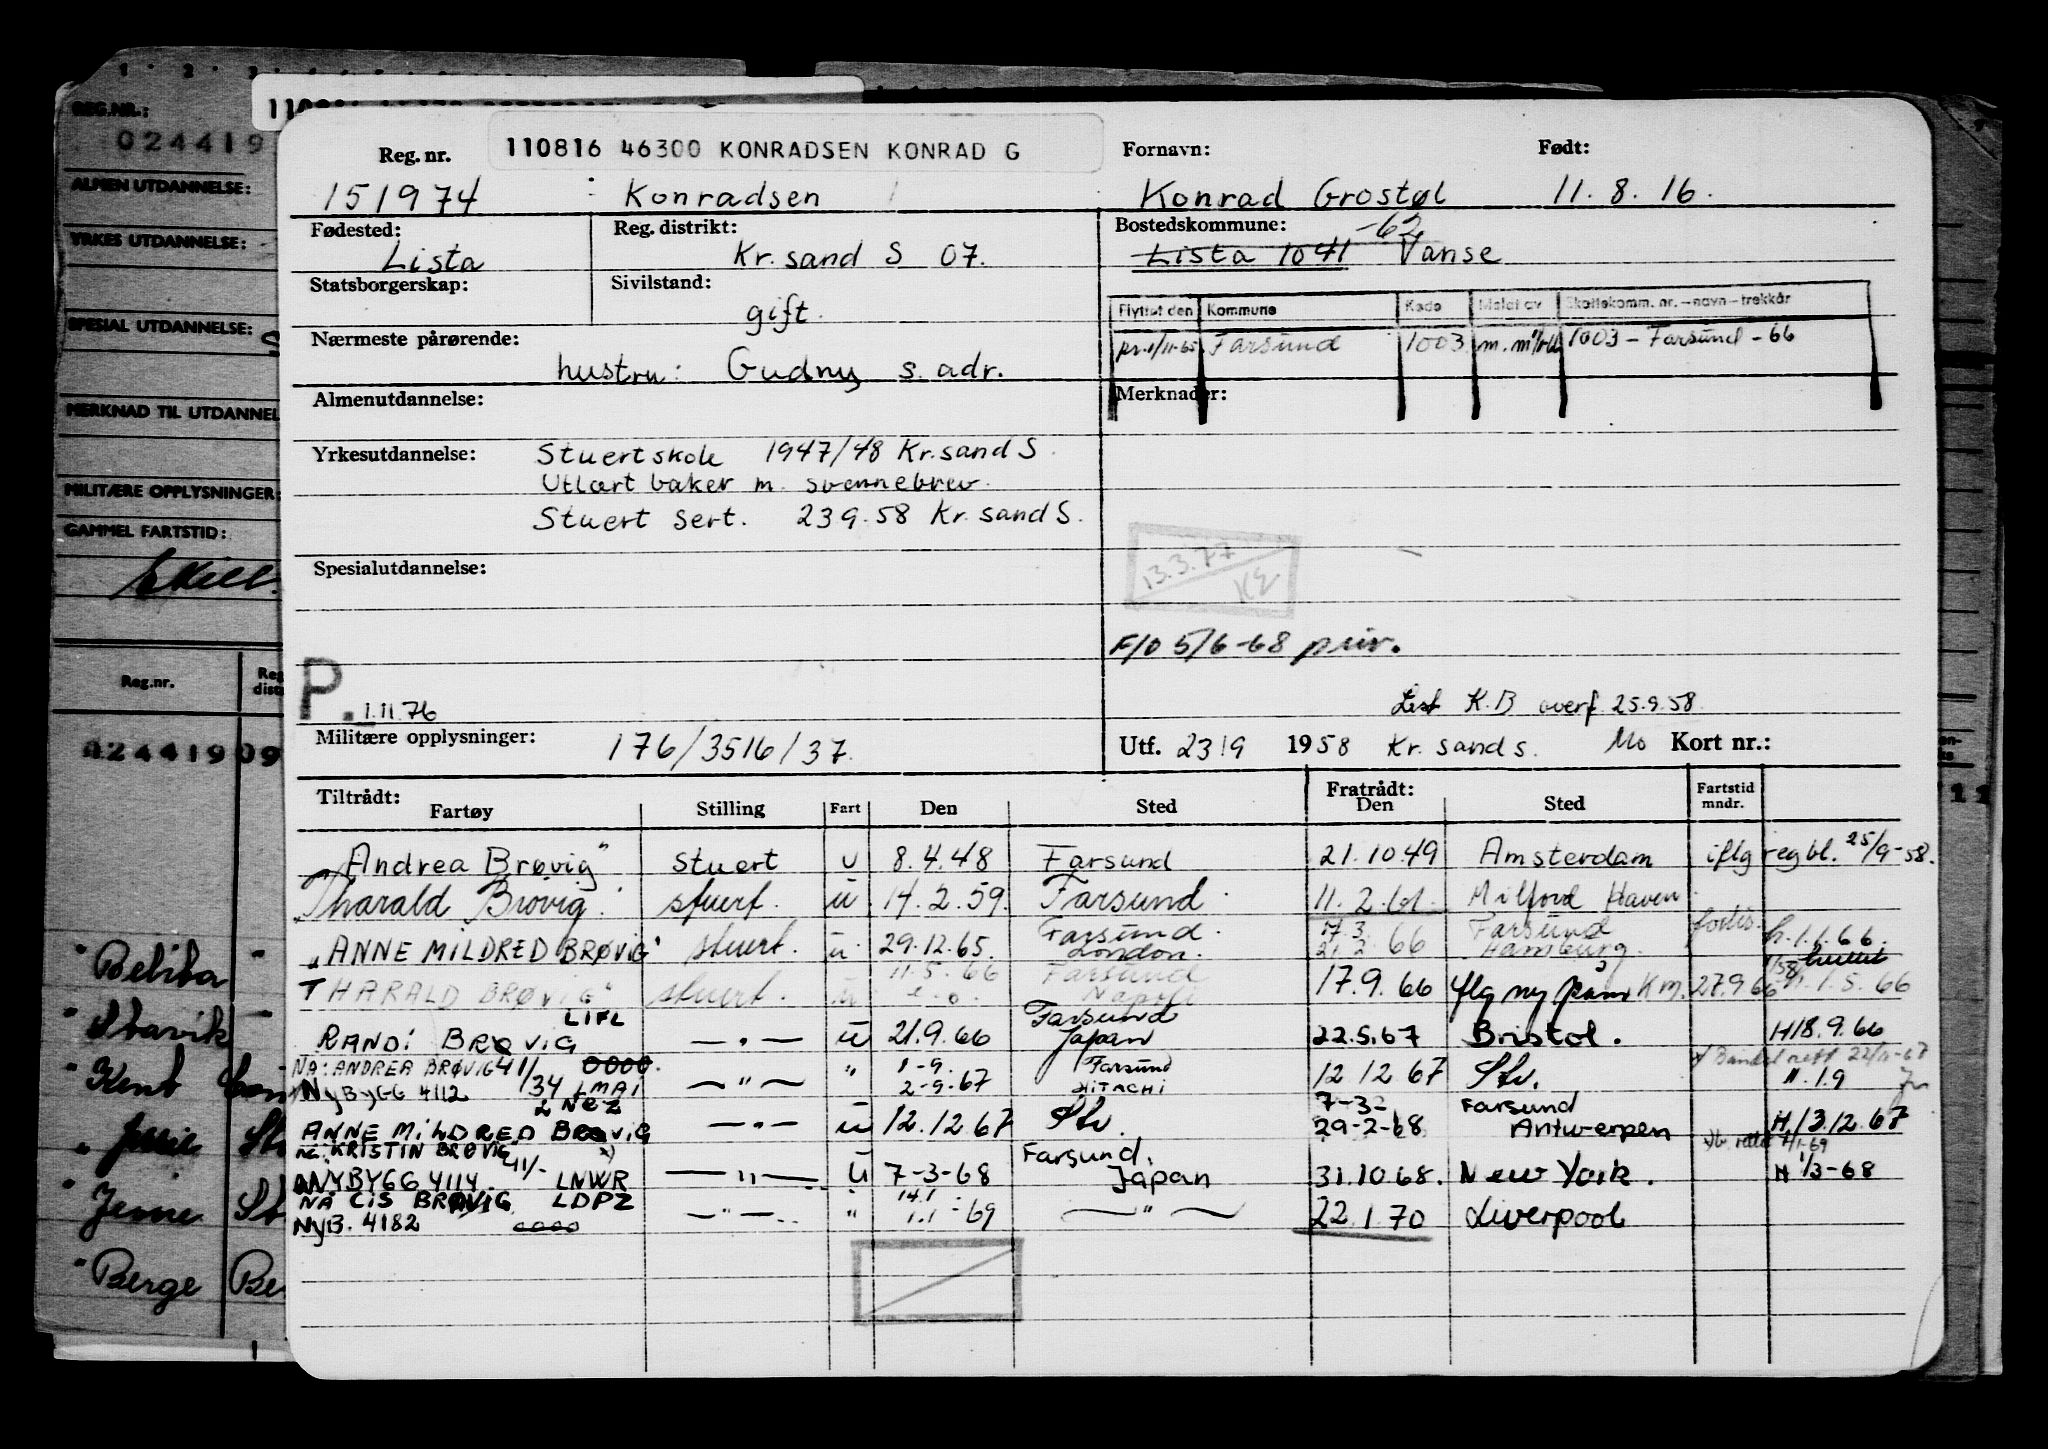 REG.NR.:
024419
ALMEN UTDANNELSE:
YRKES UTDANNELSE:
SPESIAL UTDANNELSE:
MERKNAD TIL UTDANNEL
MILITÆRE OPPLYSNINGER:
GAMMEL FARTSTID:
Reg.nr.
Reg
dist
024419 09
"Belita"
"Stavik"
"Kent
" Jessie St
" Jenne St
" Berge Be
Reg. nr. 110816 46300 KONRADSEN KONRAD G Fornavn: Født:
151974 Konradsen Konrad Grostøl 11.8.16.
Fødested: Reg. distrikt: Bostedskommune: -62
Lista Kr.sand S 07. Lista 1041 Vanse
Statsborgerskap: Sivilstand:
gift
Flyttet den Kommune Kode Meldt av Skattekomm. nr. – navn – trekkår
pr. 1/11-65 Farsund 1003 1003 – Farsund – 66
Nærmeste pårørende:
hustru: Gudny s. adr.
Almenutdannelse: Merknader:
Yrkesutdannelse: Stuertskole 1947/48 Kr.sand S.
Utlært baker m. svennebrev.
Stuert sert. 239.58 Kr.sand S.
13.3.77
KE
Spesialutdannelse:
F/O 5/6-68 priv.
P. 1.11.76
List K.B overf. 25.9.58
Militære opplysninger: 176/3516/37.
Utf. 23/9 1958 Kr.sand s. Mo Kort nr.:
Tiltrådt: Fratrådt: Fartstid
Fartøy Stilling Fart Den Sted Den Sted mndr.
"Andrea Brøvig" stuert u 8.4.48 Farsund 21.10.49 Amsterdam iflg regbl. 25/9-58.
"Tharald Brøvig". stuert. u 14.2.59. Farsund. 11.2.61. Milford Haven.
"ANNE MILDRED BRØVIG" stuert. u. 29.12.65. Farsund. London. 17.3. 21.2.66 Farsund Hamburg. h. 1.1.66.
THARALD BRØVIG" stuert. 11.5.66 Farsund Napoli 17.9.66 flg ny påm Km. 27.9.66 h. 1.5.66
LIFL
RANDI BRØVIG — " — u 21.9.66 Farsund Japan 22.5.67 Bristol. H18.9.66
NA: ANDREA BRØVIG 41/
NYBYGG 4112 /34 LMAI — " — " 1-9. 2-9-67 Farsund HITACHI 12.12.67 Stv. " 1.9
LNEZ
ANNE MILDRED BRØVIG — " — u 12.12.67 Stv. 7-3- 29-2-68 Farsund Antwerpen H.13.12.67
NA: KRISTIN BRØVIG
NYBYGG 4114. 41/- LNWR — " — u 7-3-68 Farsund. Japan 31.10.68. New York. H 1/3-68
NA CIS BRØVIG LDPZ
NYB. 4182 — " — " 14.1 1.1-69 — " — 22.1.70 Liverpool